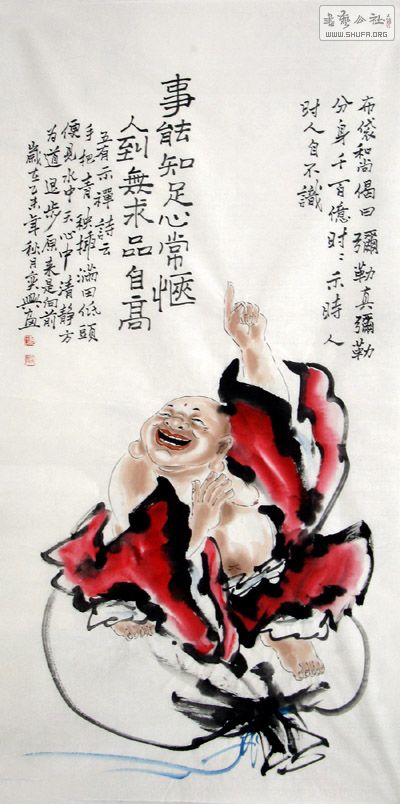 書藝公社
WWW.SHUFA.ORG
布袋和尚偈曰彌勒真彌勒
分身千百億时〻示時人
时人自不識
事能知足心常愜
人到無求品自高
有示禪詩云
手把青秧插滿田低頭
便見水中天心中清静方
为道退步原来是向前
歲在乙未年秋月興画